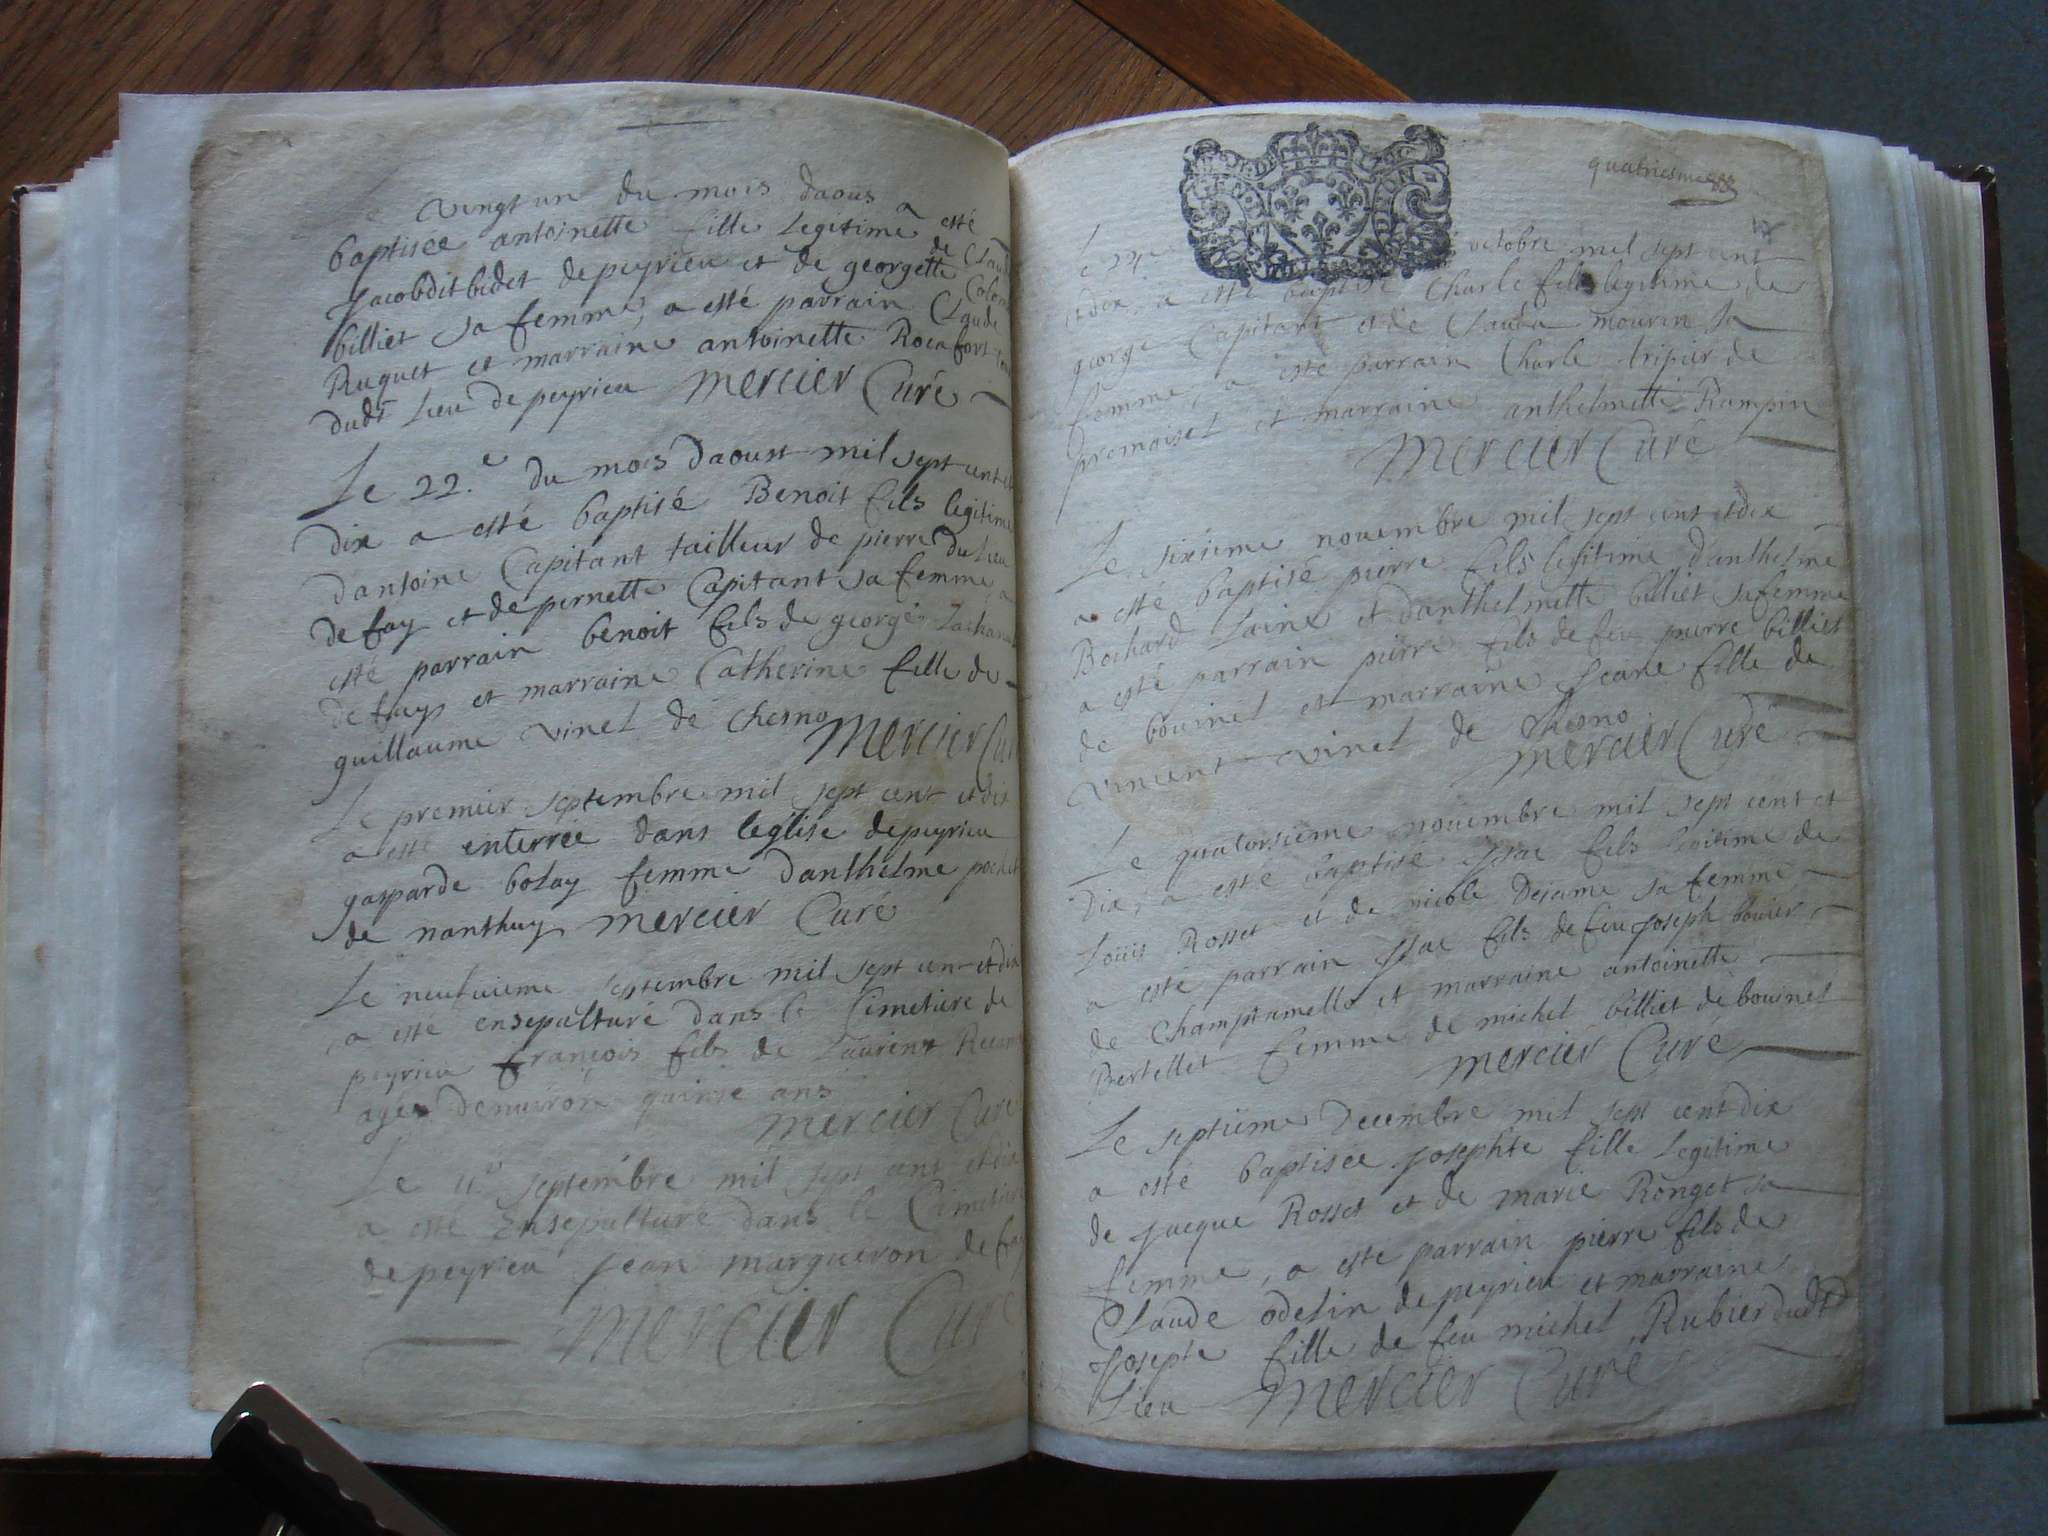 vingt un du mois daous a esté
baptisée antoinette fille Legitime de Claude
Jacob dit bidet de peyrieu et de georgette
billiet sa femme, a esté parrain Claude
Ruquet et marraine antoinette Rocafort
dudt Lieu de peyrieu Mercier Curé
Le 22.e du mois daoust mil sept cent et
dix a esté baptisé Benoit fils legitime
dantoine Capitant tailleur de pierre du lieu
de fay et de pernette Capitant sa femme, a
esté parrain benoit fils de george
de fay et marraine Catherine fille de
guillaume vinet de Chesno Mercier Cu
Le premier septembre mil sept cent et dix
a esté enterrée dans leglise de peyrieu
gasparde bolay femme danthelme pochet
de nanthuy mercier Curé
Le neufuieme septembre mil sept cent et dix
a esté ensepulturé dans le Cimetiere de
peyrieu françois fils de Laurent
agé denuiron quinze ans
mercier Curé
Le 11e septembre mil sept cent et dix
a esté Ensepulturé dans le Cimetiere
de peyrieu Jean margueron de fay
Mercier Curé
quatriesme
Le octobre mil sept cent
et dix, a esté baptisé Charle fils legitime de
george Capitant et de Clauda mourin sa
femme, a esté parrain Charle tripier de
premaisel et marraine anthelmette Rampin
Mercier Curé
Le sixieme nouembre mil sept cent et dix
a esté baptisé pierre fils legitime danthelme
Bochard Laine et danthelmette billiet sa femme
a esté parrain pierre fils de feu pierre billiet
de bouinel et marraine Jeane fille de
vincent vinet de Chesno
Mercier Curé
Le quatorsieme nouembre mil sept cent et
Dix, a esté baptisé Isac fils legitime de
Louis Rosset et de nicole Dejame sa femme
a esté parrain Isac fils de feu Joseph bouier
de Champtamelle et marraine antoinette
Bertellet femme de michel billiet de bouinel
Mercier Curé
Le septieme Decembre mil sept cent dix
a esté baptisée Josephte fille Legitime
de Jacque Rosset et de marie Ronget sa
femme, a esté parrain pierre fils de
Claude odelin de peyrieu et marraine
Josepte fille de feu michel Rubier dudt
Lieu Mercier Curé